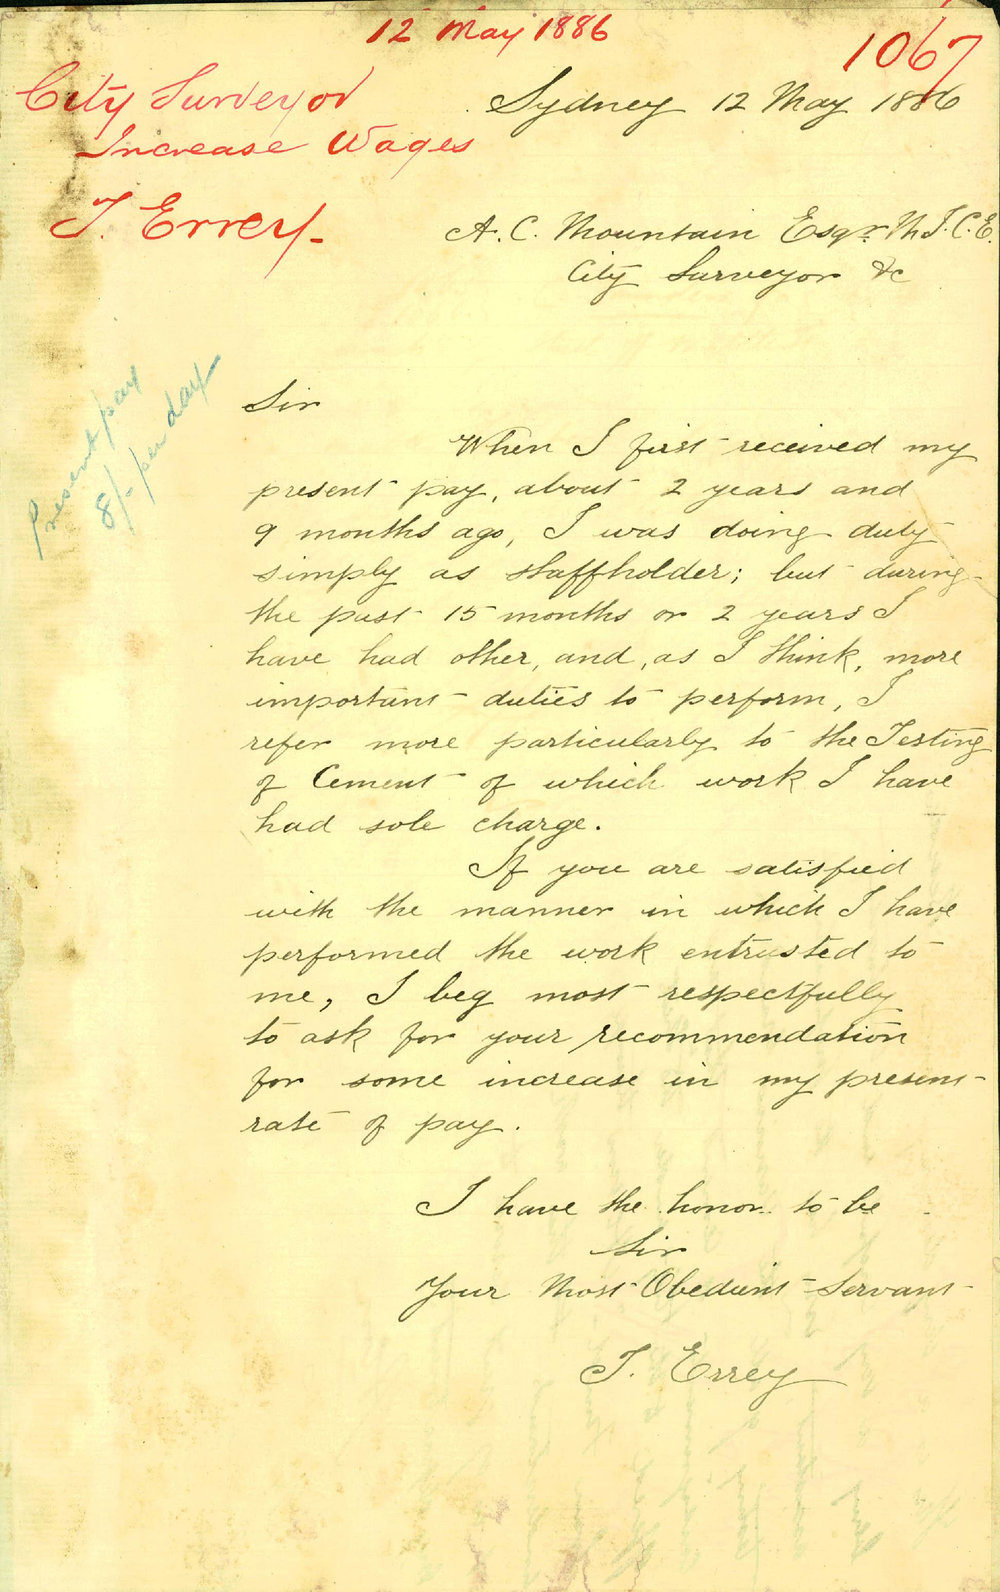 12 May 1886
1067
City Surveyor
Increase Wages
T. Errey.
Sydney 12 May 1886
A. C. Mountain Esqr. M.I.C.E.
City Surveyor &c
Present pay
8/- per day
Sir
When I first received my
present pay, about 2 years and
9 months ago, I was doing duty
simply as staffholder; but during
the past 15 months or 2 years I
have had other, and, as I think, more
important duties to perform, I
refer more particularly to the Testing
of Cement of which work I have
had sole charge.
If you are satisfied
with the manner in which I have
performed the work entrusted to
me, I beg most respectfully
to ask for your recommendation
for some increase in my present
rate of pay.
I have the honor to be
Sir
Your Most Obedient Servant
T. Errey